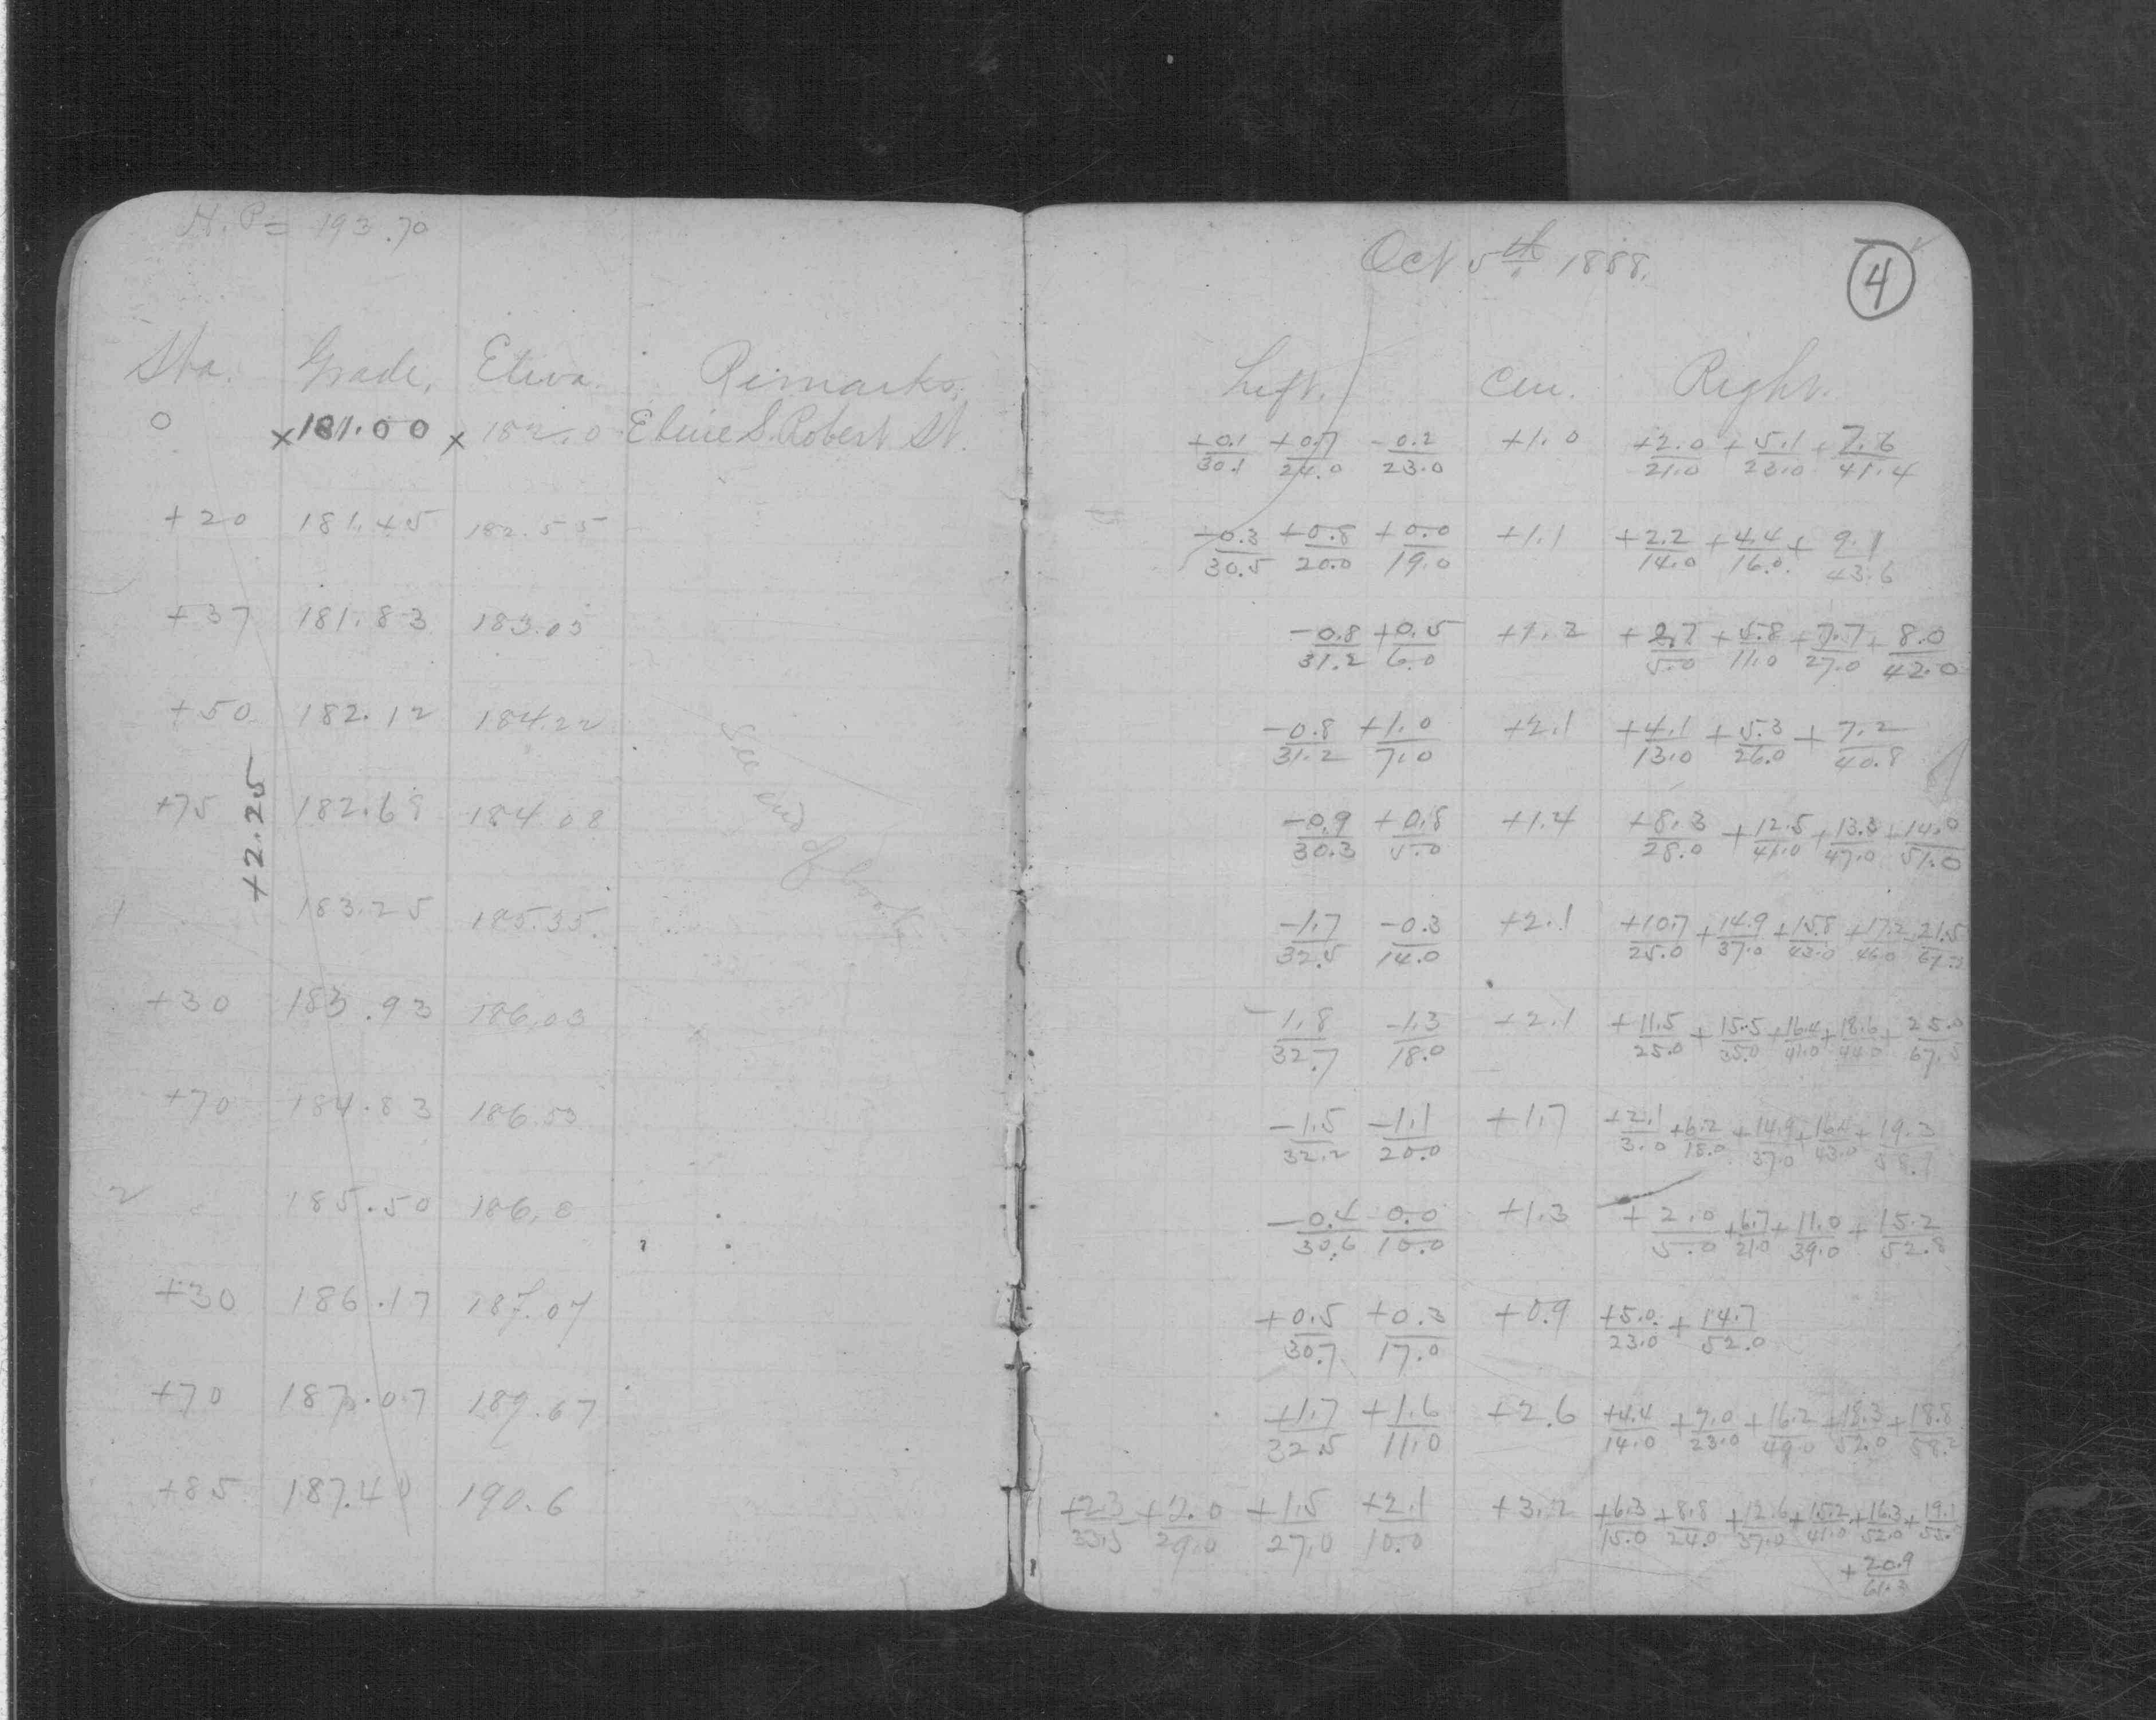 H.P = 193.70
Sta. Grade. Eleva. Remarks.
0 x181.00 x 182.0 E line S. Robert St.
+20 181.45 182.55
+37 181.83 183.03
+50 182.12 184.22
+75 182.68 184.08
+2.25
See end of book
1 183.25 185.35
+30 183.93 186.03
+70 184.83 186.53
2 185.50 186.8
+30 186.17 187.07
+70 187.07 189.67
+85 187.40 190.6
Oct 5th 1888.
4
Left. Cen. Right.
+0.1/30.1 +0.7/24.0 -0.2/23.0 +1.0 +2.0/21.0 +5.1/23.0 +7.6/41.4
-0.3/30.5 +0.8/20.0 +0.0/19.0 +1.1 +2.2/14.0 +4.4/16.0 + 9.1/43.6
-0.8/31.2 +0.5/6.0 +1.2 +2.7/5.0 +5.8/11.0 +7.7/27.0 + 8.0/42.0
-0.8/31.2 +1.0/7.0 +2.1 +4.1/13.0 +5.3/26.0 + 7.2/40.8
-0.9/30.3 +0.8/5.0 +1.4 +8.3/28.0 +12.5/41.0 +13.3/47.0 +14.0/51.0
-1.7/32.5 -0.3/14.0 +2.1 +10.7/25.0 +14.9/37.0 +15.8/43.0 +17.2/46.0 21.5
-1.8/32.7 -1.3/18.0 +2.1 +11.5/25.0 +15.5/35.0 +16.4/41.0 +18.6/44.0 + 25.0/67.5
-1.5/32.2 -1.1/20.0 +1.7 +2.1/3.0 +6.2/18.0 +14.9/37.0 +16.4/43.0 +19.3
-0.4/30.6 0.0/10.0 +1.3 +2.0/5.0 +6.7/21.0 +11.0/39.0 +15.2/52.8
+0.5/30.7 +0.3/17.0 +0.9 +5.0/23.0 +14.7/52.0
+1.7/32.5 +1.6/11.0 +2.6 +4.4/14.0 +7.0/23.0 +16.2/49.0 +18.3/52.0 +18.8
+2.3/33.5 +2.0/29.0 +1.5/27.0 +2.1/10.0 +3.2 +6.3/15.0 +8.8/24.0 +12.6/37.0 +15.2/41.0 +16.3/52.0 +19.1
+20.9/61.3